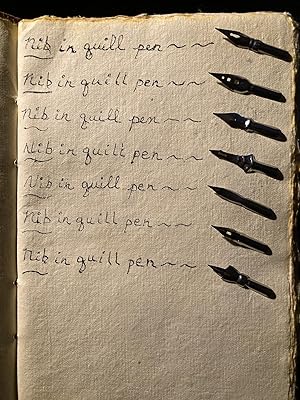 Nib in quill pen ~ ~
Nib in quill pen ~ ~
Nib in quill pen ~ ~
Nib in quill pen ~ ~
Nib in quill pen ~ ~
Nib in quill pen ~ ~
Nib in quill pen ~ ~